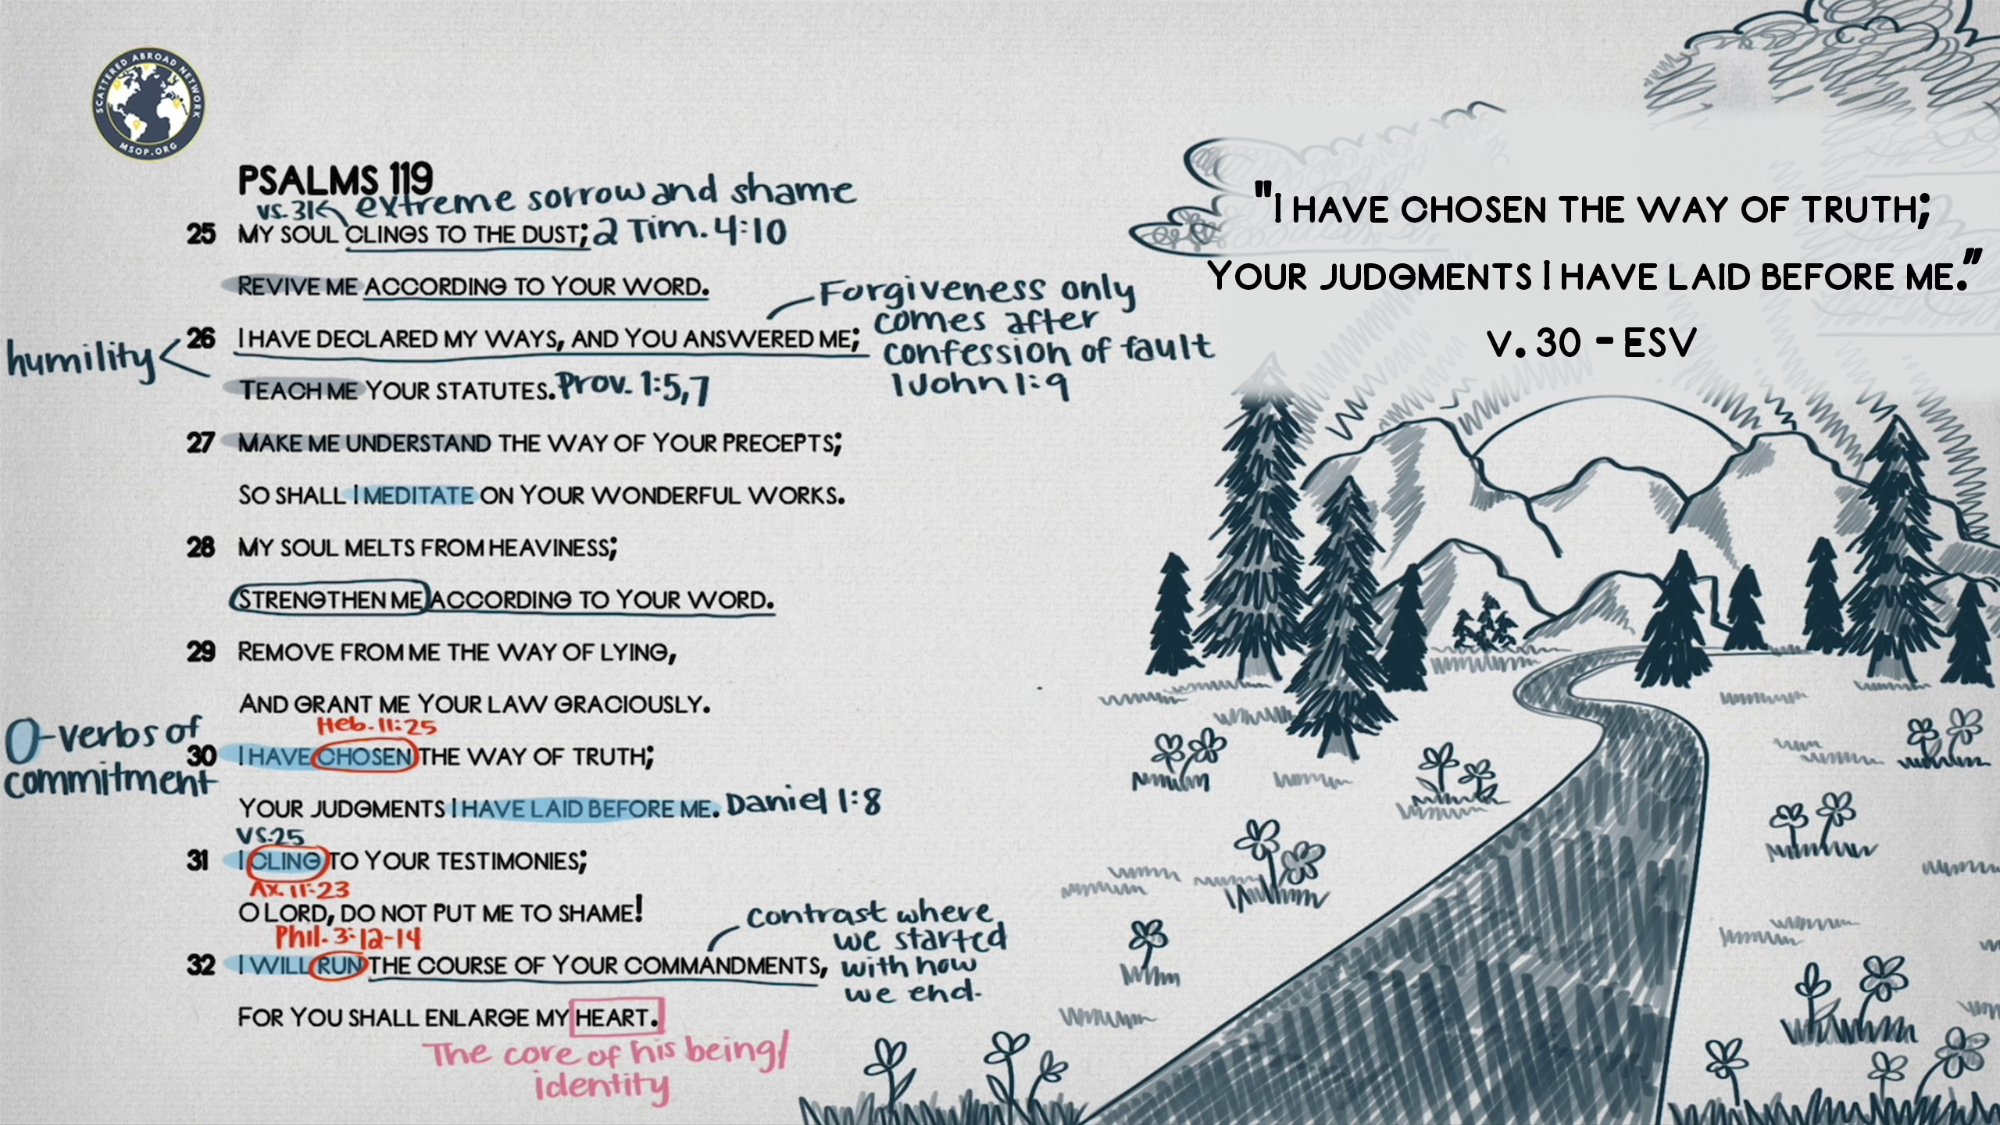 SCATTERED ABROAD NETWORK
MSOP.ORG
PSALMS 119
vs. 31 extreme sorrow and shame
25 MY SOUL CLINGS TO THE DUST; 2 Tim. 4:10
REVIVE ME ACCORDING TO YOUR WORD.
26 I HAVE DECLARED MY WAYS, AND YOU ANSWERED ME;
Forgiveness only
comes after
confession of fault
1 John 1:9
humility
TEACH ME YOUR STATUTES. Prov. 1:5,7
27 MAKE ME UNDERSTAND THE WAY OF YOUR PRECEPTS;
SO SHALL I MEDITATE ON YOUR WONDERFUL WORKS.
28 MY SOUL MELTS FROM HEAVINESS;
STRENGTHEN ME ACCORDING TO YOUR WORD.
29 REMOVE FROM ME THE WAY OF LYING,
AND GRANT ME YOUR LAW GRACIOUSLY.
Heb. 11:25
-verbs of
commitment
30 I HAVE CHOSEN THE WAY OF TRUTH;
YOUR JUDGMENTS I HAVE LAID BEFORE ME. Daniel 1:8
VS:25
31 I CLING TO YOUR TESTIMONIES;
Ax. 11:23
O LORD, DO NOT PUT ME TO SHAME!
Phil. 3:12-14
32 I WILL RUN THE COURSE OF YOUR COMMANDMENTS,
contrast where
we started
with how
we end.
FOR YOU SHALL ENLARGE MY HEART.
The core of his being/
identity
"I HAVE CHOSEN THE WAY OF TRUTH;
YOUR JUDGMENTS I HAVE LAID BEFORE ME.”
V. 30 - ESV